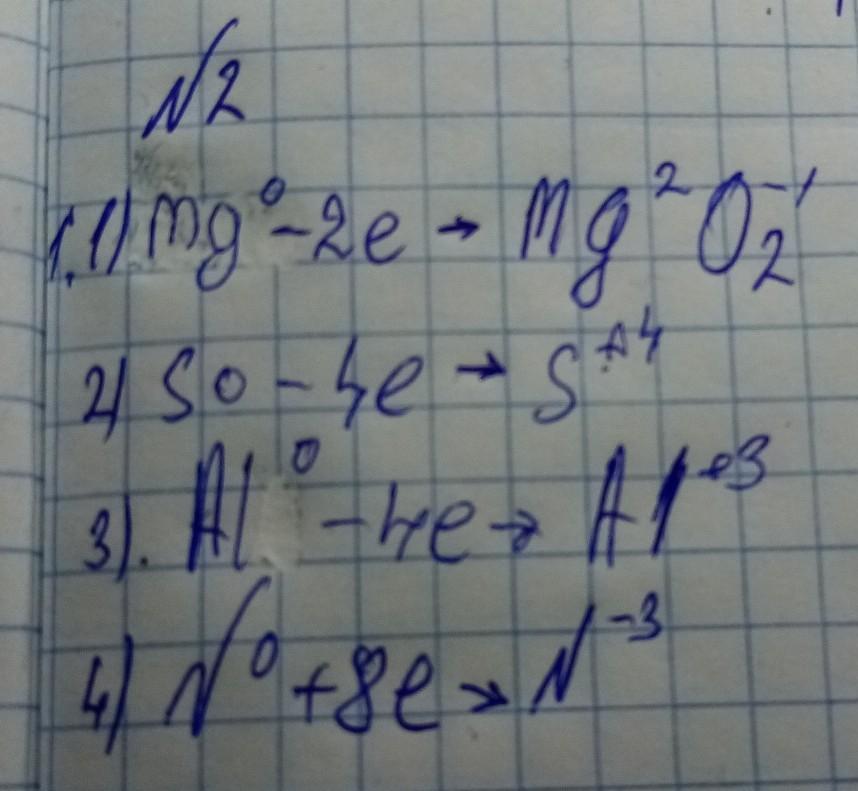 №2
1.1) Mg⁰ - 2e → Mg² O₂⁻¹
2) S0 - 4e → S⁺⁴
3). Al⁰ - 4e → Al⁺³
4) N⁰ + 8e → N⁻³